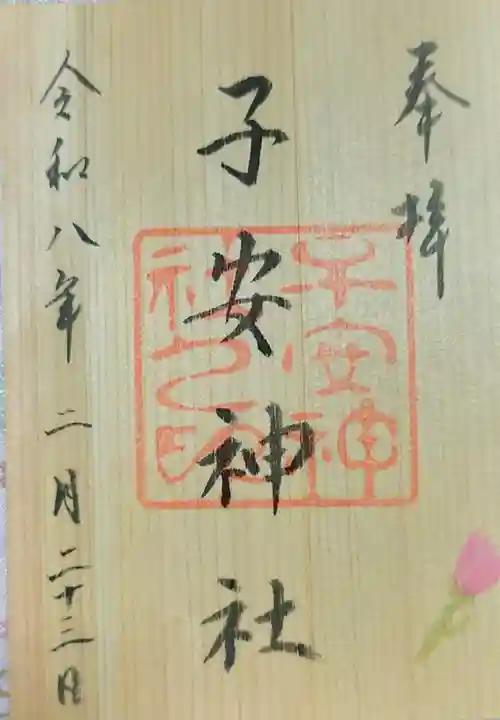 奉拝
子安神社
子安神
社之印
令和八年二月二十三日